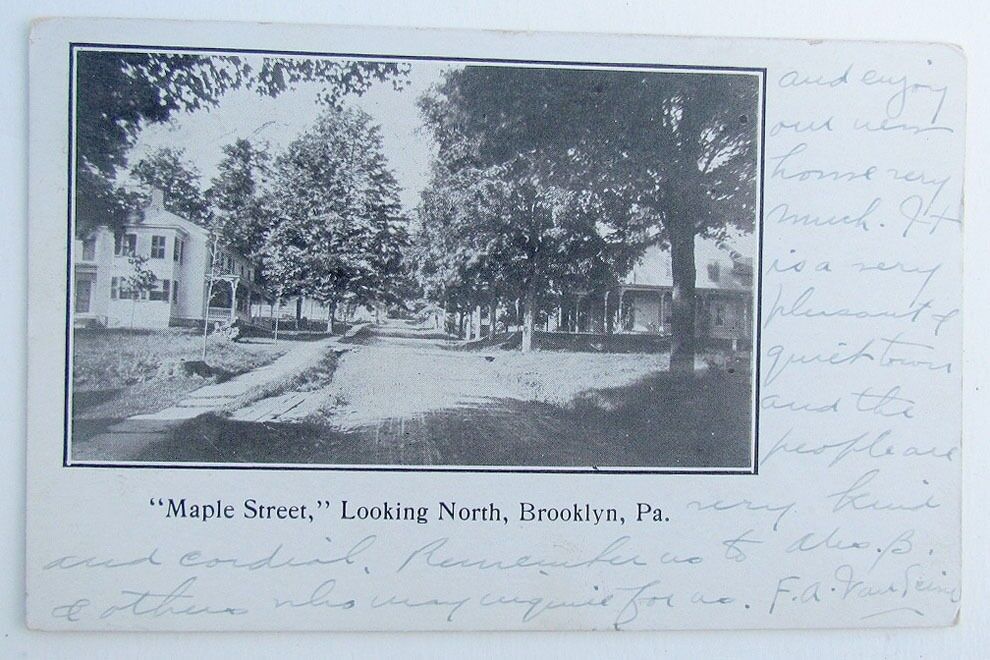 and enjoy
our new
home very
much. It
is a very
pleasant &
quiet town
and the
people are
"Maple Street," Looking North, Brooklyn, Pa.
very kind
and cordial. Remember us to B.
& others who may inquire for us. F. A. Van